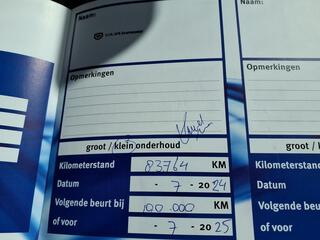 Naam:
Naam:
Opmerkingen
Opmerkingen
groot / klein onderhoud
groot /
Kilometerstand 83764 KM
Kilometerstand
Datum - 7 - 2024
Datum
Volgende beurt bij 100.000 KM
Volgende beurt
of voor - 7 - 2025
of voor